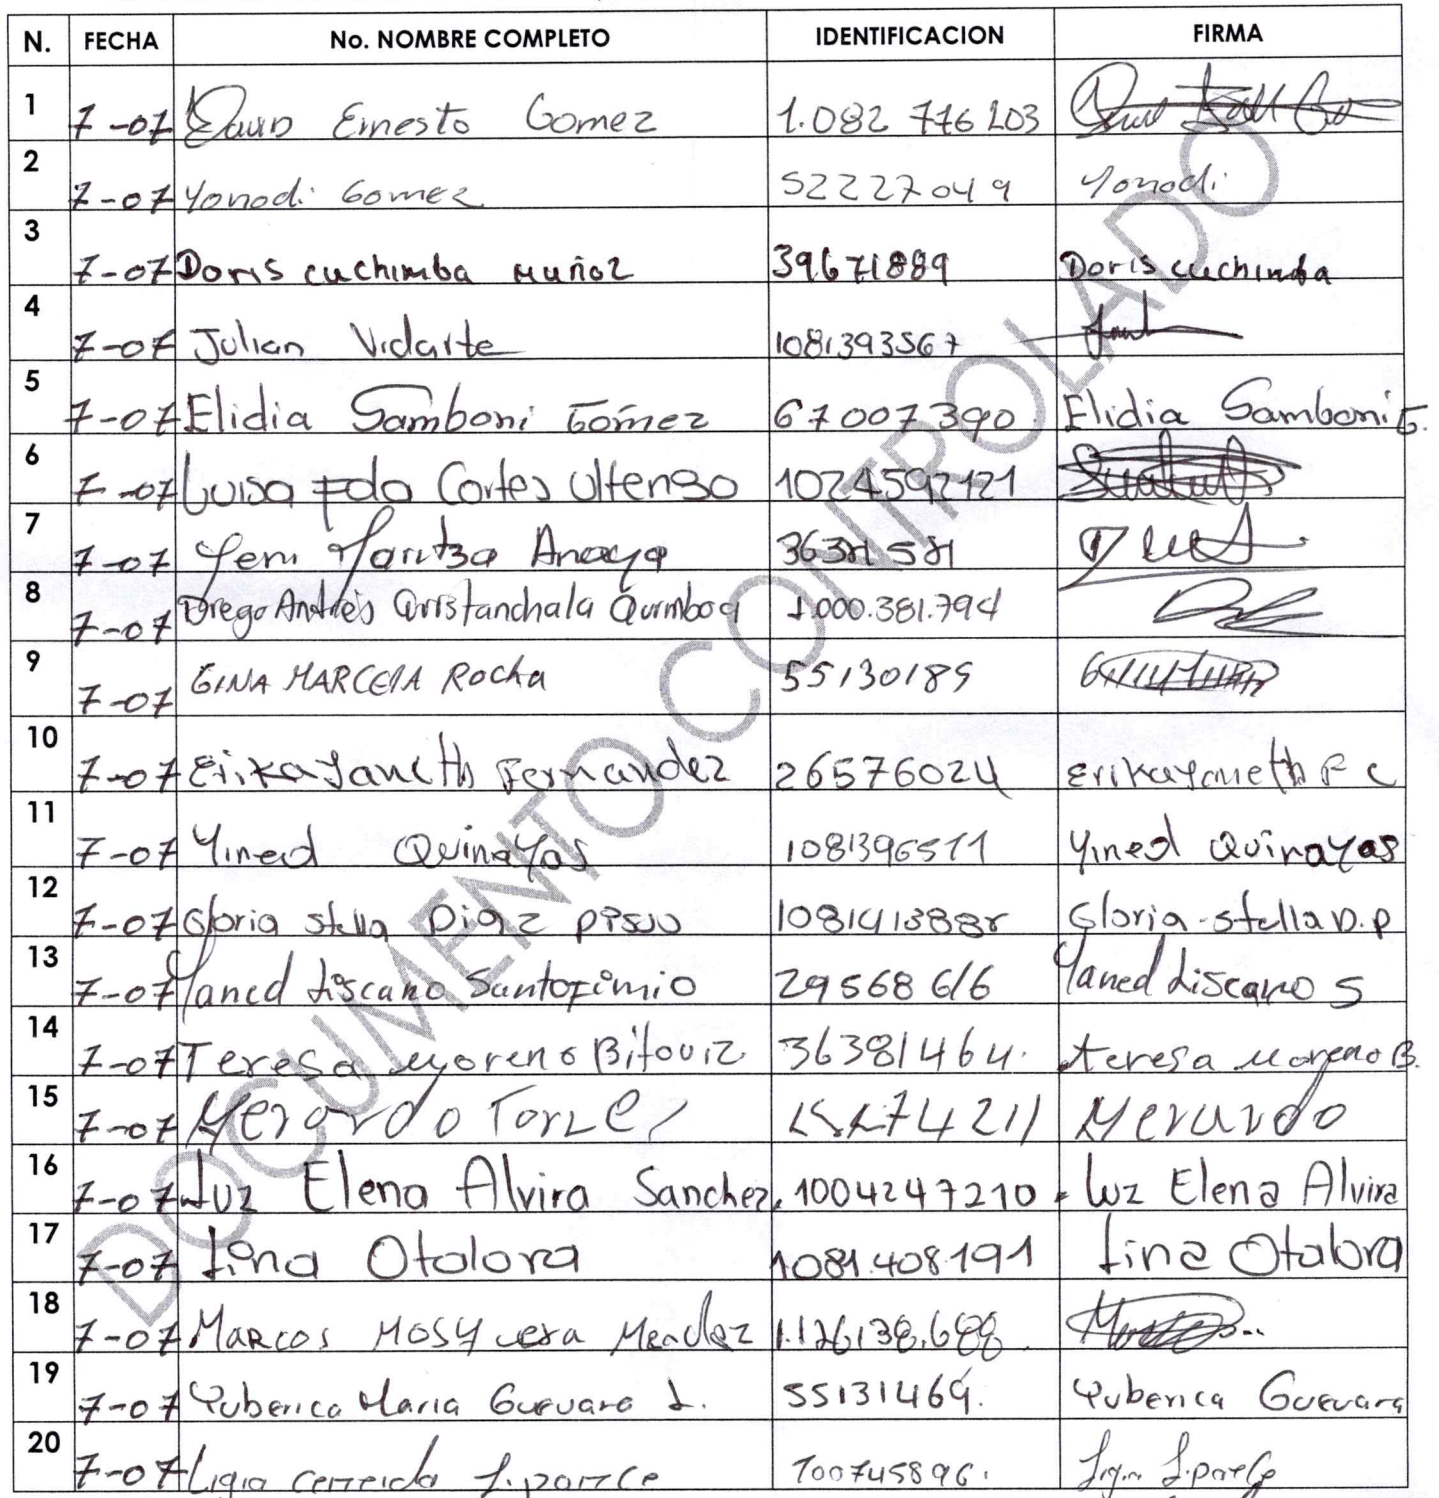 N. FECHA No. NOMBRE COMPLETO IDENTIFICACION FIRMA
1 7-07 Ernesto Gomez 1.082 776 203
2 7-07 Yonadi Gomez 52227049 Yonadi
3 7-07 Doris cuchimba Muñoz 39671889 Doris cuchimba
4 7-07 Julian Vidarte 1081393567
5 7-07 Elidia Samboni Gómez 67007390 Elidia Samboni G.
6 7-07 Luisa Fda Cortes 1024592121
7 7-07 Yeni Maritza Anaya
8 7-07 Diego Andrés 1.000.381.794
9 7-07 GINA MARCElA Rocha 55130189
10 7-07 Erika Janeth Fernandez 26576024 Erika Janeth F C
11 7-07 Yined Quinayas 1081396511 Yined Quinayas
12 7-07 Gloria stella Diaz Gloria stella D.P
13 7-07 Yaned Liscano Santofimio 29568616 Yaned Liscano S
14 7-07 Teresa Moreno 36381464. teresa Moreno B.
15 7-07
16 7-07 Luz Elena Alvira Sanchez. 1004247210. Luz Elena Alvira
17 7-07 Lina Otalora 1081.408.191 Lina Otalora
18 7-07 Marcos Mosquera Mendez
19 7-07 Yuberica Maria Guevara L. 55131469. Yuberica Guevara
20 7-07 Ligia
DOCUMENTO CONTROLADO